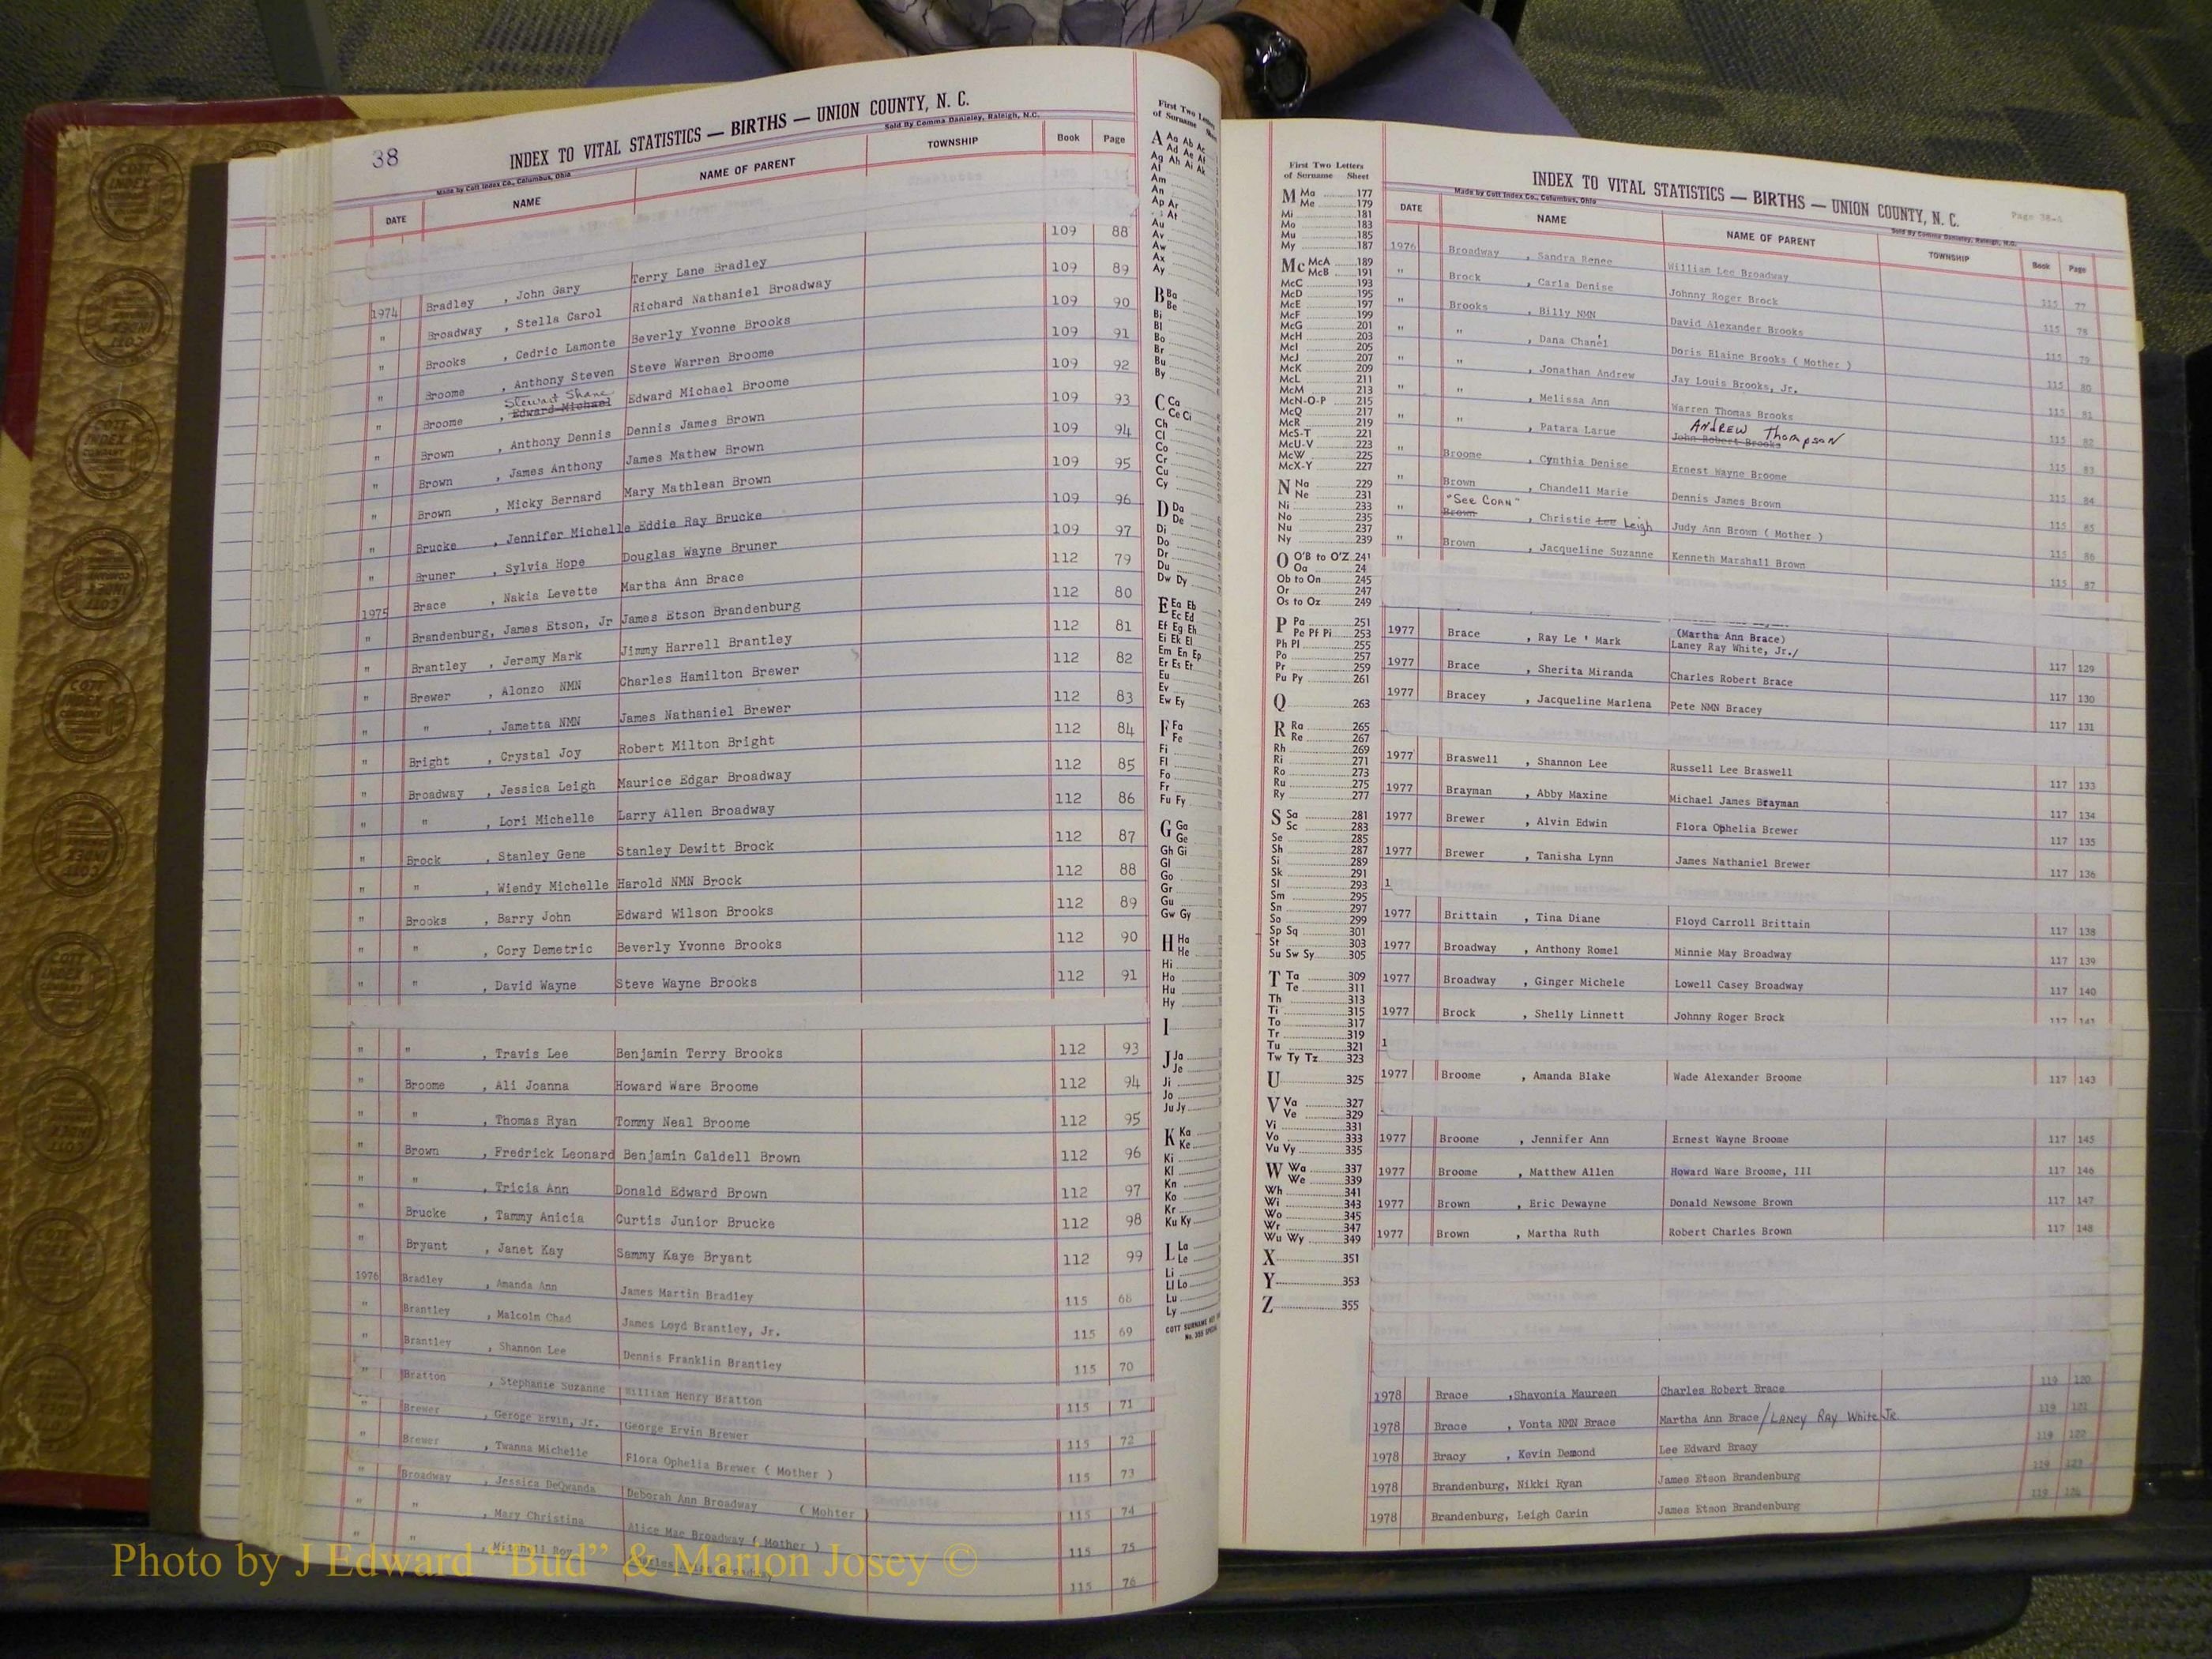 38
INDEX TO VITAL STATISTICS — BIRTHS — UNION COUNTY, N. C.
Made by Cott Index Co., Columbus, Ohio
Sold By Comma Danieley, Raleigh, N.C.
DATE NAME NAME OF PARENT TOWNSHIP Book Page
109 88
1974 Bradley , John Gary Terry Lane Bradley 109 89
" Broadway , Stella Carol Richard Nathaniel Broadway 109 90
" Brooks , Cedric Lamonte Beverly Yvonne Brooks 109 91
" Broome , Anthony Steven Steve Warren Broome 109 92
Stewart Shane
" Broome , Edward Michael Edward Michael Broome 109 93
" Brown , Anthony Dennis Dennis James Brown 109 94
" Brown , James Anthony James Mathew Brown 109 95
" Brown , Micky Bernard Mary Mathlean Brown 109 96
" Brucke , Jennifer Michelle Eddie Ray Brucke 109 97
" Bruner , Sylvia Hope Douglas Wayne Bruner 112 79
1975 Brace , Nakia Levette Martha Ann Brace 112 80
" Brandenburg, James Etson, Jr James Etson Brandenburg 112 81
" Brantley , Jeremy Mark Jimmy Harrell Brantley 112 82
" Brewer , Alonzo NMN Charles Hamilton Brewer 112 83
" " , Jametta NMN James Nathaniel Brewer 112 84
" Bright , Crystal Joy Robert Milton Bright 112 85
" Broadway , Jessica Leigh Maurice Edgar Broadway 112 86
" " , Lori Michelle Larry Allen Broadway 112 87
" Brock , Stanley Gene Stanley Dewitt Brock 112 88
" " , Wiendy Michelle Harold NMN Brock 112 89
" Brooks , Barry John Edward Wilson Brooks 112 90
" " , Cory Demetric Beverly Yvonne Brooks 112 91
" " , David Wayne Steve Wayne Brooks
" " , Travis Lee Benjamin Terry Brooks 112 93
" Broome , Ali Joanna Howard Ware Broome 112 94
" " , Thomas Ryan Tommy Neal Broome 112 95
" Brown , Fredrick Leonard Benjamin Caldell Brown 112 96
" " , Tricia Ann Donald Edward Brown 112 97
" Brucke , Tammy Anicia Curtis Junior Brucke 112 98
" Bryant , Janet Kay Sammy Kaye Bryant 112 99
1976 Bradley , Amanda Ann James Martin Bradley 115 68
" Brantley , Malcolm Chad James Loyd Brantley, Jr. 115 69
" Brantley , Shannon Lee Dennis Franklin Brantley 115 70
" Bratton , Stephanie Suzanne William Henry Bratton 115 71
" Brewer , Geroge Ervin, Jr. George Ervin Brewer 115 72
" Brewer , Twanna Michelle Flora Ophelia Brewer ( Mother ) 115 73
" Broadway , Jessica DeQwanda Deborah Ann Broadway ( Mohter ) 115 74
" " , Mary Christina Alice Mae Broadway ( Mother ) 115 75
" " , Mitchell Roy 115 76
First Two Letters
of Surname
A Aa Ab Ac
Ad Ae Af
Ag Ah Ai Ak
Al
Am
An
Ap Ar
At
Au
Av
Aw
Ax
Ay
B Ba
Be
Bi
Bl
Bo
Br
Bu
By
C Ca
Ce Ci
Ch
Cl
Co
Cr
Cu
Cy
D Da
De
Di
Do
Dr
Du
Dw Dy
E Ea Eb
Ec Ed
Ef Eg Eh
Ei Ek El
Em En Ep
Er Es Et
Eu
Ev
Ew Ey
F Fa
Fe
Fi
Fl
Fo
Fr
Fu Fy
G Ga
Ge
Gh Gi
Gl
Go
Gr
Gu
Gw Gy
H Ha
He
Hi
Ho
Hu
Hy
I
J Ja
Je
Ji
Jo
Ju Jy
K Ka
Ke
Ki
Kl
Kn
Ko
Kr
Ku Ky
L La
Le
Li
Ll Lo
Lu
Ly
COTT SURNAME
First Two Letters
of Surname Sheet
M Ma 177
Me 179
Mi 181
Mo 183
Mu 185
My 187
Mc McA 189
McB 191
McC 193
McD 195
McE 197
McF 199
McG 201
McH 203
McI 205
McJ 207
McK 209
McL 211
McM 213
McN-O-P 215
McQ 217
McR 219
McS-T 221
McU-V 223
McW 225
McX-Y 227
N Na 229
Ne 231
Ni 233
No 235
Nu 237
Ny 239
O O'B to O'Z 241
Oa 24
Ob to On 245
Or 247
Os to Oz 249
P Pa 251
Pe Pf Pi 253
Ph Pl 255
Po 257
Pr 259
Pu Py 261
Q 263
R Ra 265
Re 267
Rh 269
Ri 271
Ro 273
Ru 275
Ry 277
S Sa 281
Sc 283
Se 285
Sh 287
Si 289
Sk 291
Sl 293
Sm 295
Sn 297
So 299
Sp Sq 301
St 303
Su Sw Sy 305
T Ta 309
Te 311
Th 313
Ti 315
To 317
Tr 319
Tu 321
Tw Ty Tz 323
U 325
V Va 327
Ve 329
Vi 331
Vo 333
Vu Vy 335
W Wa 337
We 339
Wh 341
Wi 343
Wo 345
Wr 347
Wu Wy 349
X 351
Y 353
Z 355
INDEX TO VITAL STATISTICS — BIRTHS — UNION COUNTY, N. C.
Made by Cott Index Co., Columbus, Ohio
Sold By Comma Danieley, Raleigh, N.C.
DATE NAME NAME OF PARENT TOWNSHIP Book Page
1976 Broadway , Sandra Renee William Lee Broadway 115 77
" Brock , Carla Denise Johnny Roger Brock 115 78
" Brooks , Billy NMN David Alexander Brooks 115 79
" " , Dana Chanel Doris Elaine Brooks ( Mother ) 115 80
" " , Jonathan Andrew Jay Louis Brooks, Jr. 115 81
" " , Melissa Ann Warren Thomas Brooks 115 82
ANdREW Thompson
" " , Patara Larue John Robert Brooks 115 83
" Broome , Cynthia Denise Ernest Wayne Broome 115 84
" Brown , Chandell Marie Dennis James Brown 115 85
"See Conn"
" Brown , Christie Lee Leigh Judy Ann Brown ( Mother ) 115 86
" Brown , Jacqueline Suzanne Kenneth Marshall Brown 115 87
(Martha Ann Brace)
1977 Brace , Ray Le ' Mark Laney Ray White, Jr./ 117 129
1977 Brace , Sherita Miranda Charles Robert Brace 117 130
1977 Bracey , Jacqueline Marlena Pete NMN Bracey 117 131
1977 Braswell , Shannon Lee Russell Lee Braswell 117 133
1977 Brayman , Abby Maxine Michael James Brayman 117 134
1977 Brewer , Alvin Edwin Flora Ophelia Brewer 117 135
1977 Brewer , Tanisha Lynn James Nathaniel Brewer 117 136
1
1977 Brittain , Tina Diane Floyd Carroll Brittain 117 138
1977 Broadway , Anthony Romel Minnie May Broadway 117 139
1977 Broadway , Ginger Michele Lowell Casey Broadway 117 140
1977 Brock , Shelly Linnett Johnny Roger Brock 117 141
1
1977 Broome , Amanda Blake Wade Alexander Broome 117 143
1977 Broome , Jennifer Ann Ernest Wayne Broome 117 145
1977 Broome , Matthew Allen Howard Ware Broome, III 117 146
1977 Brown , Eric Dewayne Donald Newsome Brown 117 147
1977 Brown , Martha Ruth Robert Charles Brown 117 148
1978 Brace ,Shavonia Maureen Charles Robert Brace 119 120
1978 Brace , Vonta NMN Brace Martha Ann Brace/LANEY RAY White Jr. 119 121
1978 Bracy , Kevin Demond Lee Edward Bracy 119 122
1978 Brandenburg, Nikki Ryan James Etson Brandenburg 119 123
1978 Brandenburg, Leigh Carin James Etson Brandenburg 119
Photo by J Edward “Bud” & Marion Josey ©